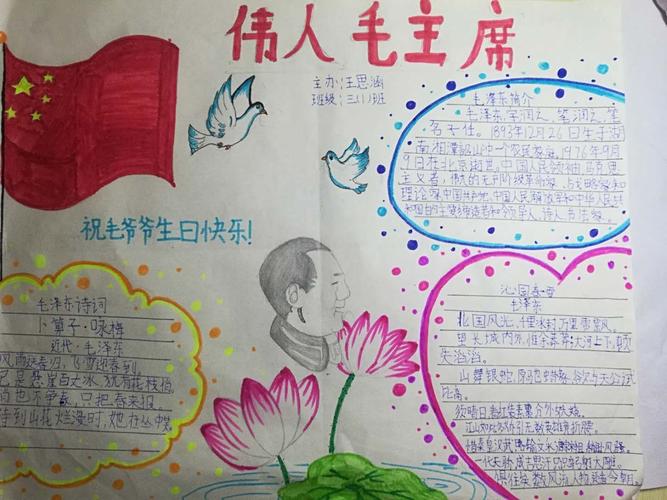 伟人毛主席
主办：王思涵
班级：三(1)班
毛泽东简介
毛泽东，字润之，笔
名子任。1893年12月26日生于湖
南湘潭韶山冲一个农民家庭。1976年9月
9日在北京逝世。中国人民领袖，
主义者，伟大的无产阶级革命家、战略家和
理论家，中国共产党、中国人民解放军和中华人民共
和国的主要缔造者和领导人，诗人，书法家。
祝毛爷爷生日快乐！
毛泽东诗词
卜算子·咏梅
近代·毛泽东
风雨送春归，飞雪迎春到。
已是悬崖百丈冰，犹有花枝俏
俏也不争春，只把春来报
待到山花烂漫时，她在丛中笑
沁园春·雪
毛泽东
北国风光，千里冰封，万里雪飘。
望长城内外，惟余莽莽；大河上下，顿
失滔滔。
山舞银蛇，原驰蜡象，欲与天公试
比高。
须晴日，看红装素裹，分外妖娆。
江山如此多娇，引无数英雄竞折腰。
惜秦皇汉武，略输文采；唐宗宋祖，稍逊风骚。
一代天骄，成吉思汗，只识弯弓射大雕。
俱往矣，数风流人物，还看今朝。